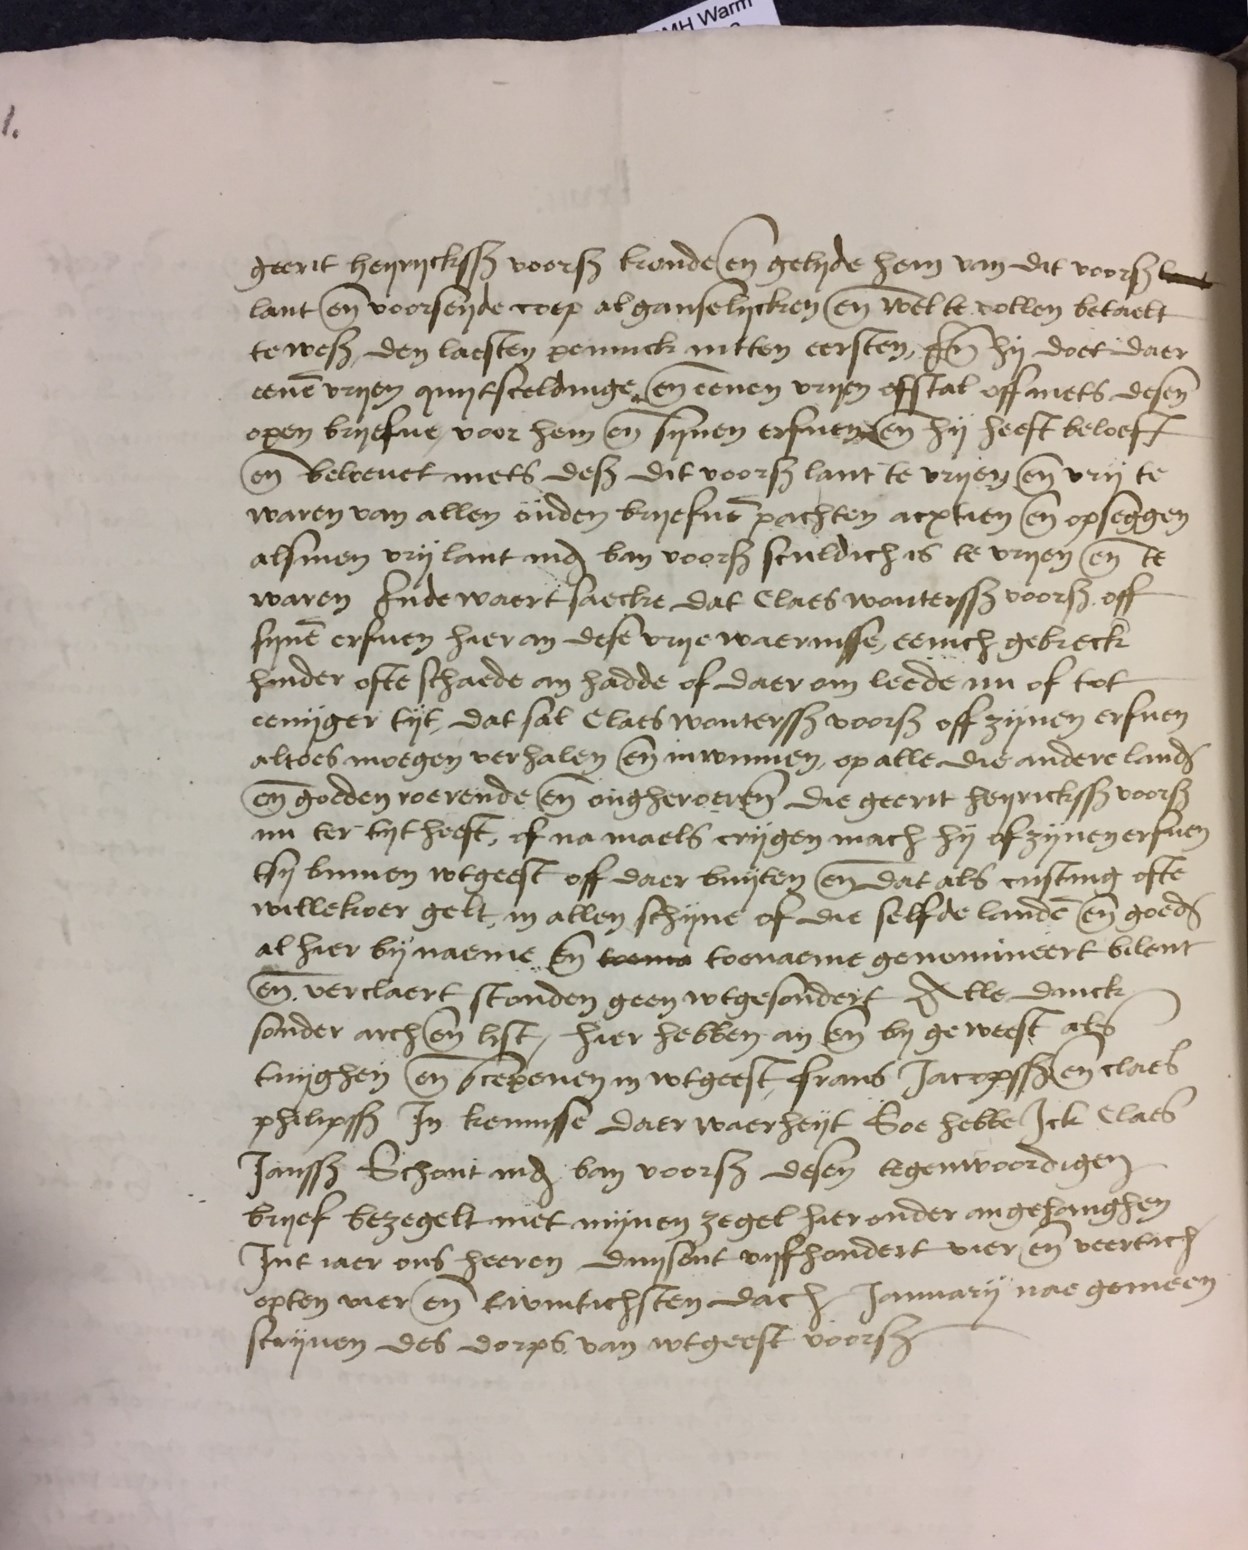 MH Warm
1.
geerit heijrijckssß voorsß kende en gelijde hem van dit voorsß
lant en voorseijde coep al ganselijcken en wel te vollen betaelt
te wesß den laesten pennick mitten eersten, En hij doet daer
eene vrijen quijtsceldinge, en eenen vrijen offstal off mets desen
open brijefve, voor hem en sijnen erfven en hij heeft beloeft
en belovet mets desß dit voorsß lant te vrijen en vrij te
waren van allen ouden brijefve pachten actien en opseggen
alsmen vrij lant ind ban voorsß sculdich is te vrijen en te
waren Ende waert saecke dat Claes woutersß voorsß off
sijne erfven hier an dese vrije waernisse, eenich gebreck
hinder ofte schaede an hadde of daer om leede nu of tot
eenijger tijt, dat sal Claes woutersß voorsß off zijnen erfven
altoes moegen verhalen en inwinnen, op alle die andere land
en goeden roerende en ongheroeren die geerit heijrickssß voorsß
nu ter tijt heeft, of na maels crijgen mach hij of zijnen erfven
tsij binnen wtgeest off daer buijten en dat als custing ofte
willekoer gelt, in allen schijne of die selfde lande en goed
al hier bij naeme En toenaeme genomineert bilent
en verclaert stonden geen wtgesondert Alle dinck
sonder arch en list, hier hebben an en bij geweest als
tuijghen en scepenen in wtgeest, frans Jacopssß en claes
philipsß In kennisse daer waerheijt Soe hebbe Ick Claes
Janssß Schout ind ban voorsß desen tegenwoordigen
brijef bezegelt met mijnen zegel hier onder angehanghen
Int iaer ons heeren duijsent vijfhondert vier en veertich
opten vier en twintichsten dach Januarij nae gemeen
scrijven des dorps van wtgeest voorsß